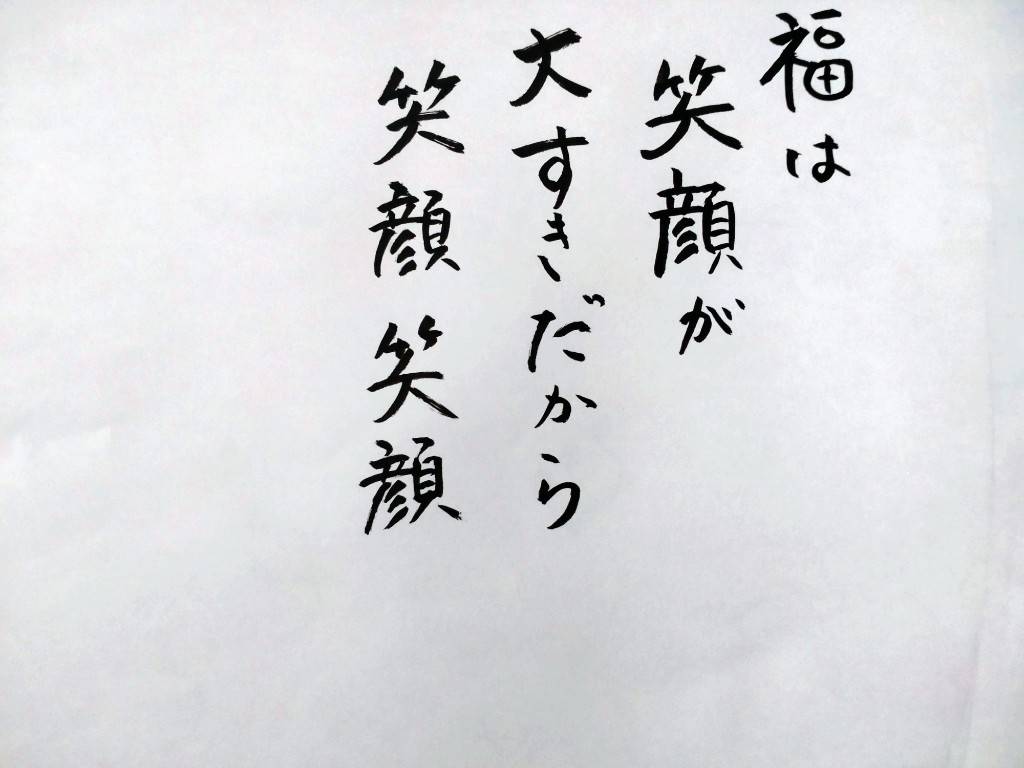 福は
笑顔が
大すきだから
笑顔笑顔